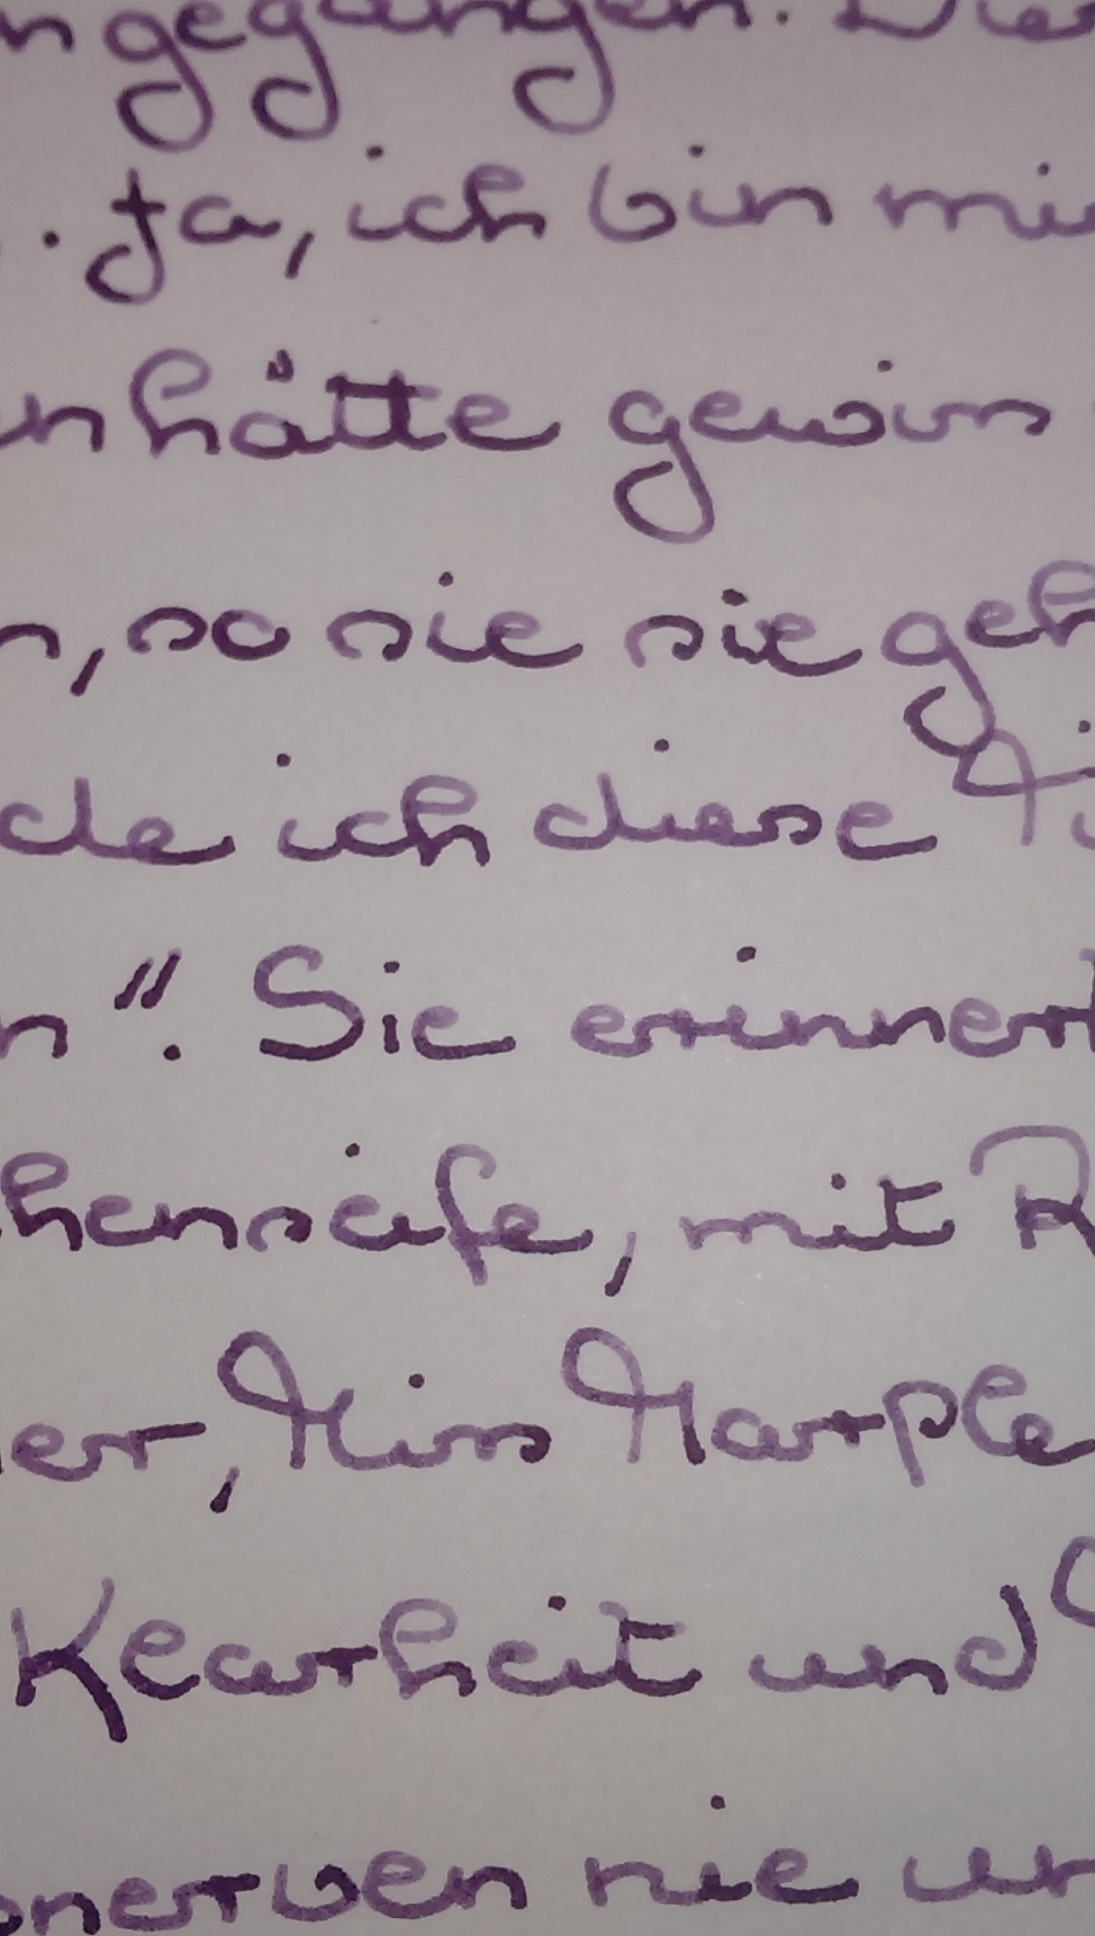 ngegangen. Die
. Ja, ich bin mi
n hätte gewiss
n, so sie sie geh
de ich diese Mi
n". Sie erinnert
henseife, mit R
er, Miss Marple
Klarheit und
nerven nie un